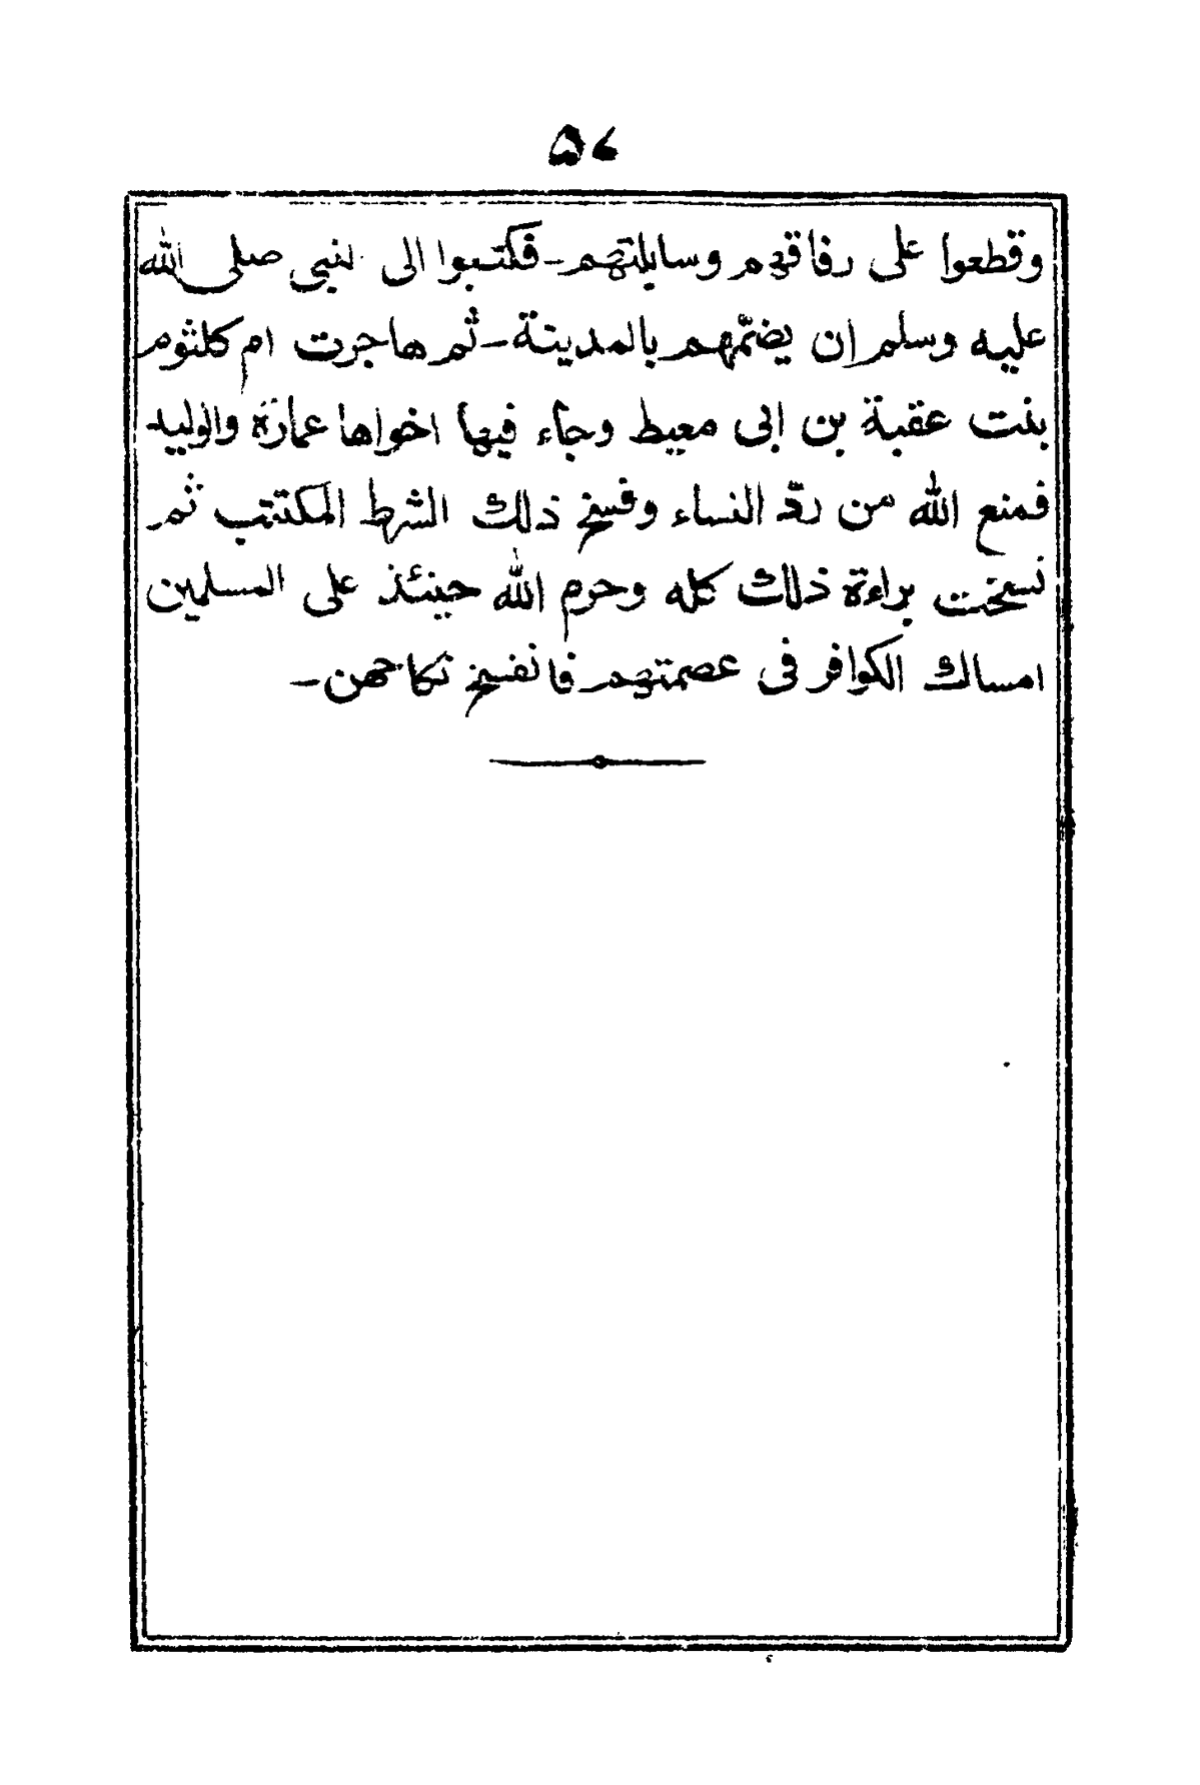 ۵۷
وقطعوا على رفاقهم وسابلتهم ـ فكتبوا الى لنبى صلى الله
عليه وسلم ان يضمّهم بالمدينة ـ ثم هاجرت ام كلثوم
بنت عقبة بن ابى معيط وجاء فيها اخواها عمارة والوليد
فمنع الله من ردّ النساء وفسخ ذلك الشرط المكتتب ثم
نسخت براءة ذلك كله وحرم الله حينئذ على المسلمين
امساك الكوافر فى عصمتهم فانفسخ نكاحهن ـ